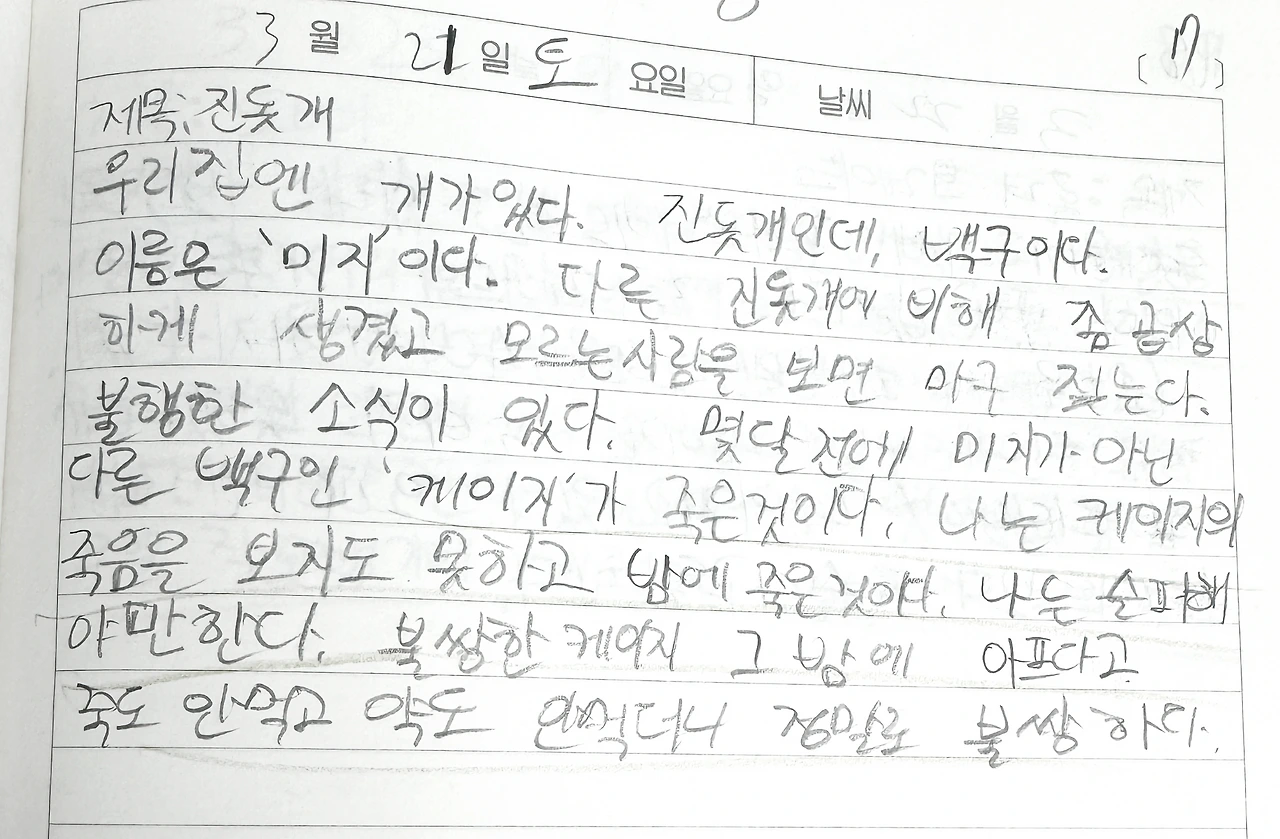 3월 21일 토요일 날씨 [17]
제목: 진돗개
우리집엔 개가 있다. 진돗개인데, 백구이다.
이름은 '미지'이다. 다른 진돗개에 비해 좀 곰상
하게 생겼고 모르는사람을 보면 마구 짖는다.
불행한 소식이 있다. 몇달전에 미지가 아닌
다른 백구인 '케이지'가 죽은것이다. 나는 케이지의
죽음을 보지도 못하고 밤에 죽은것이다. 나는 슬퍼해
야만한다. 불쌍한 케이지 그 밤에 아프다고
죽도 안먹고 약도 안먹더니 정말로 불쌍하다.